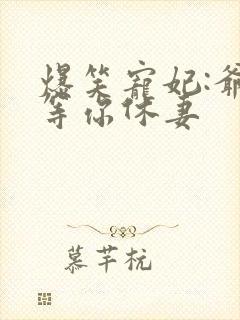 爆笑寵妃:爺
等你休妻
慕芊杭